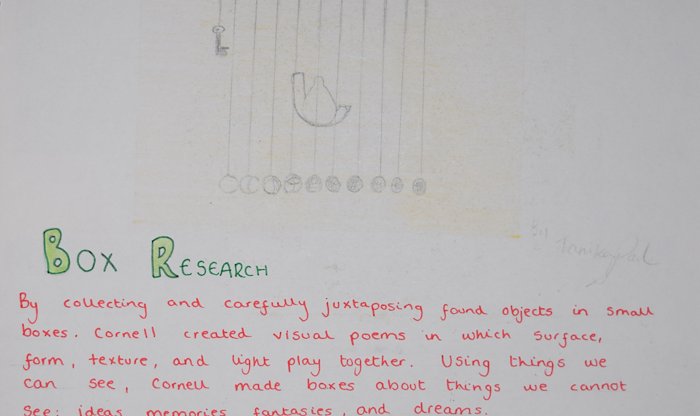 By
BOX RESEARCH
By collecting and carefully juxtaposing found objects in small
boxes. Cornell created visual poems in which surface,
form, texture, and light play together. Using things we
can see, Cornell made boxes about things we cannot
see: ideas, memories, fantasies, and dreams.